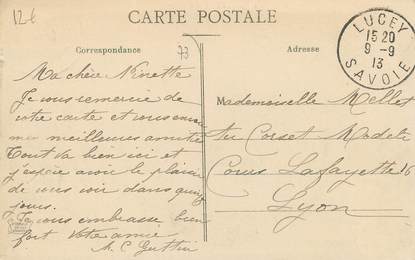 12€
CARTE POSTALE
Correspondance
73
Adresse
LUCEY
15 20
9-9
13
SAVOIE
Ma chère Ninette
Je vous remercie de
votre carte et vous envoie
mes meilleures amitiés
Tout va bien ici et
j'espère avoir le plaisir
de vous voir dans quinze
jours.
Je vous embrasse bien
fort votre amie
M. C.
Mademoiselle Mellet
Au Corset Modèle
Cours Lafayette 16
Lyon